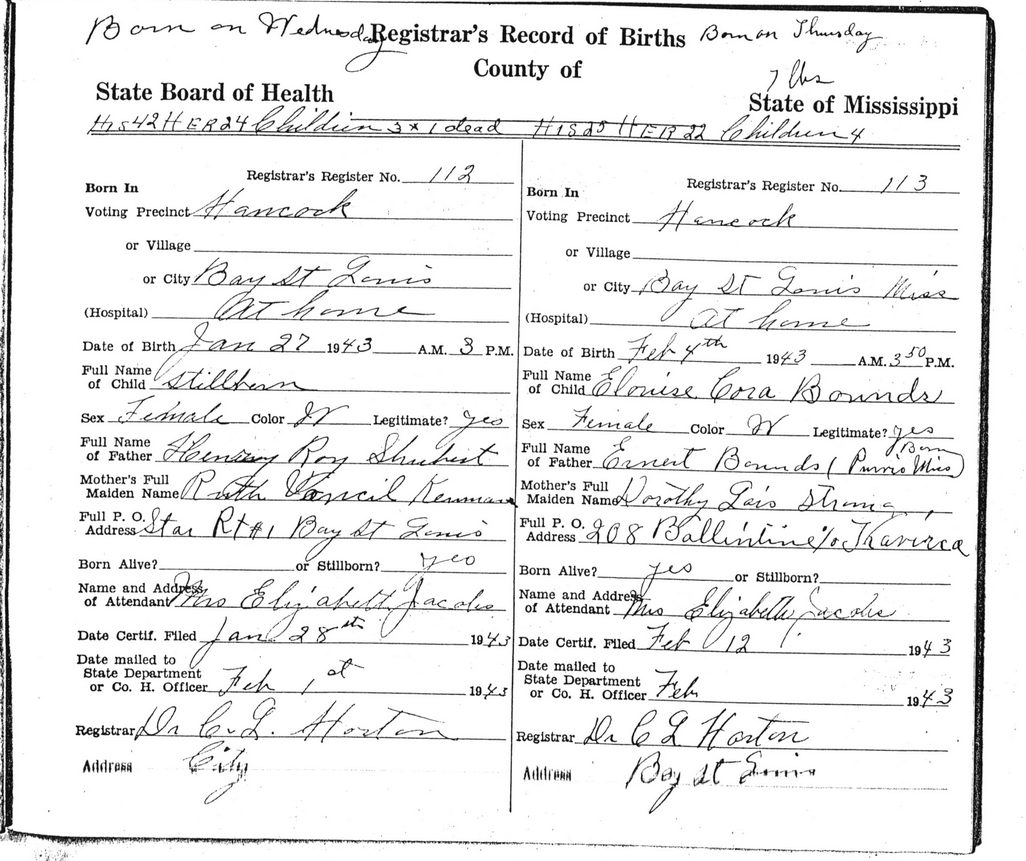 Born on Wednesday
Registrar's Record of Births
Born on Thursday
County of
7 lbs
State Board of Health
State of Mississippi
HIS 42 HER 24 Children 3 x 1 dead
HIS 25 HER 22 Children 4
Registrar's Register No. 112
Born In
Voting Precinct Hancock
or Village
or City Bay St Louis
(Hospital) At home
Date of Birth Jan 27 1943 A.M. 3 P.M.
Full Name
of Child Stillborn
Sex Female Color W Legitimate? yes
Full Name
of Father Henry Roy Shubert
Mother's Full
Maiden Name Ruth
Full P. O.
Address Star Rt #1 Bay St Louis
Born Alive? or Stillborn? yes
Name and Address
of Attendant Mrs Elizabeth Jacobs
Date Certif. Filed Jan 28th 1943
Date mailed to
State Department
or Co. H. Officer Feb 1st 1943
Registrar Dr C. L. Horton
Address City
Registrar's Register No. 113
Born In
Voting Precinct Hancock
or Village
or City Bay St Louis Miss
(Hospital) At home
Date of Birth Feb 4th 1943 A.M. 3 50 P.M.
Full Name
of Child Elouise Cora Bounds
Sex Female Color W Legitimate? yes
Full Name
of Father Ernest Bounds (Born Purvis Miss)
Mother's Full
Maiden Name Dorothy Lois Strong
Full P. O.
Address 208 Ballintine c/o
Born Alive? yes or Stillborn?
Name and Address
of Attendant Mrs Elizabeth Jacobs
Date Certif. Filed Feb 12 1943
Date mailed to
State Department
or Co. H. Officer Feb 1943
Registrar Dr C L Horton
Address Bay St Louis